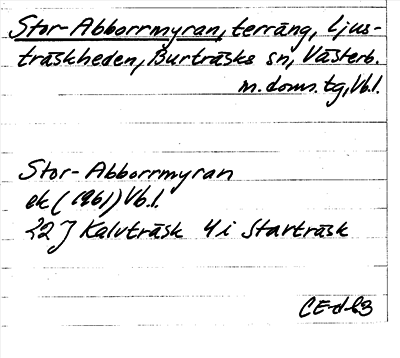 Stor-Abborrmyran, terräng, Ljus-
träskheden, Burträsks sn, Västerb.
m. doms. tg, Vb.l.
Stor-Abborrmyran
ek (1961) Vb.l.
22J Kalvträsk 4i Starträsk